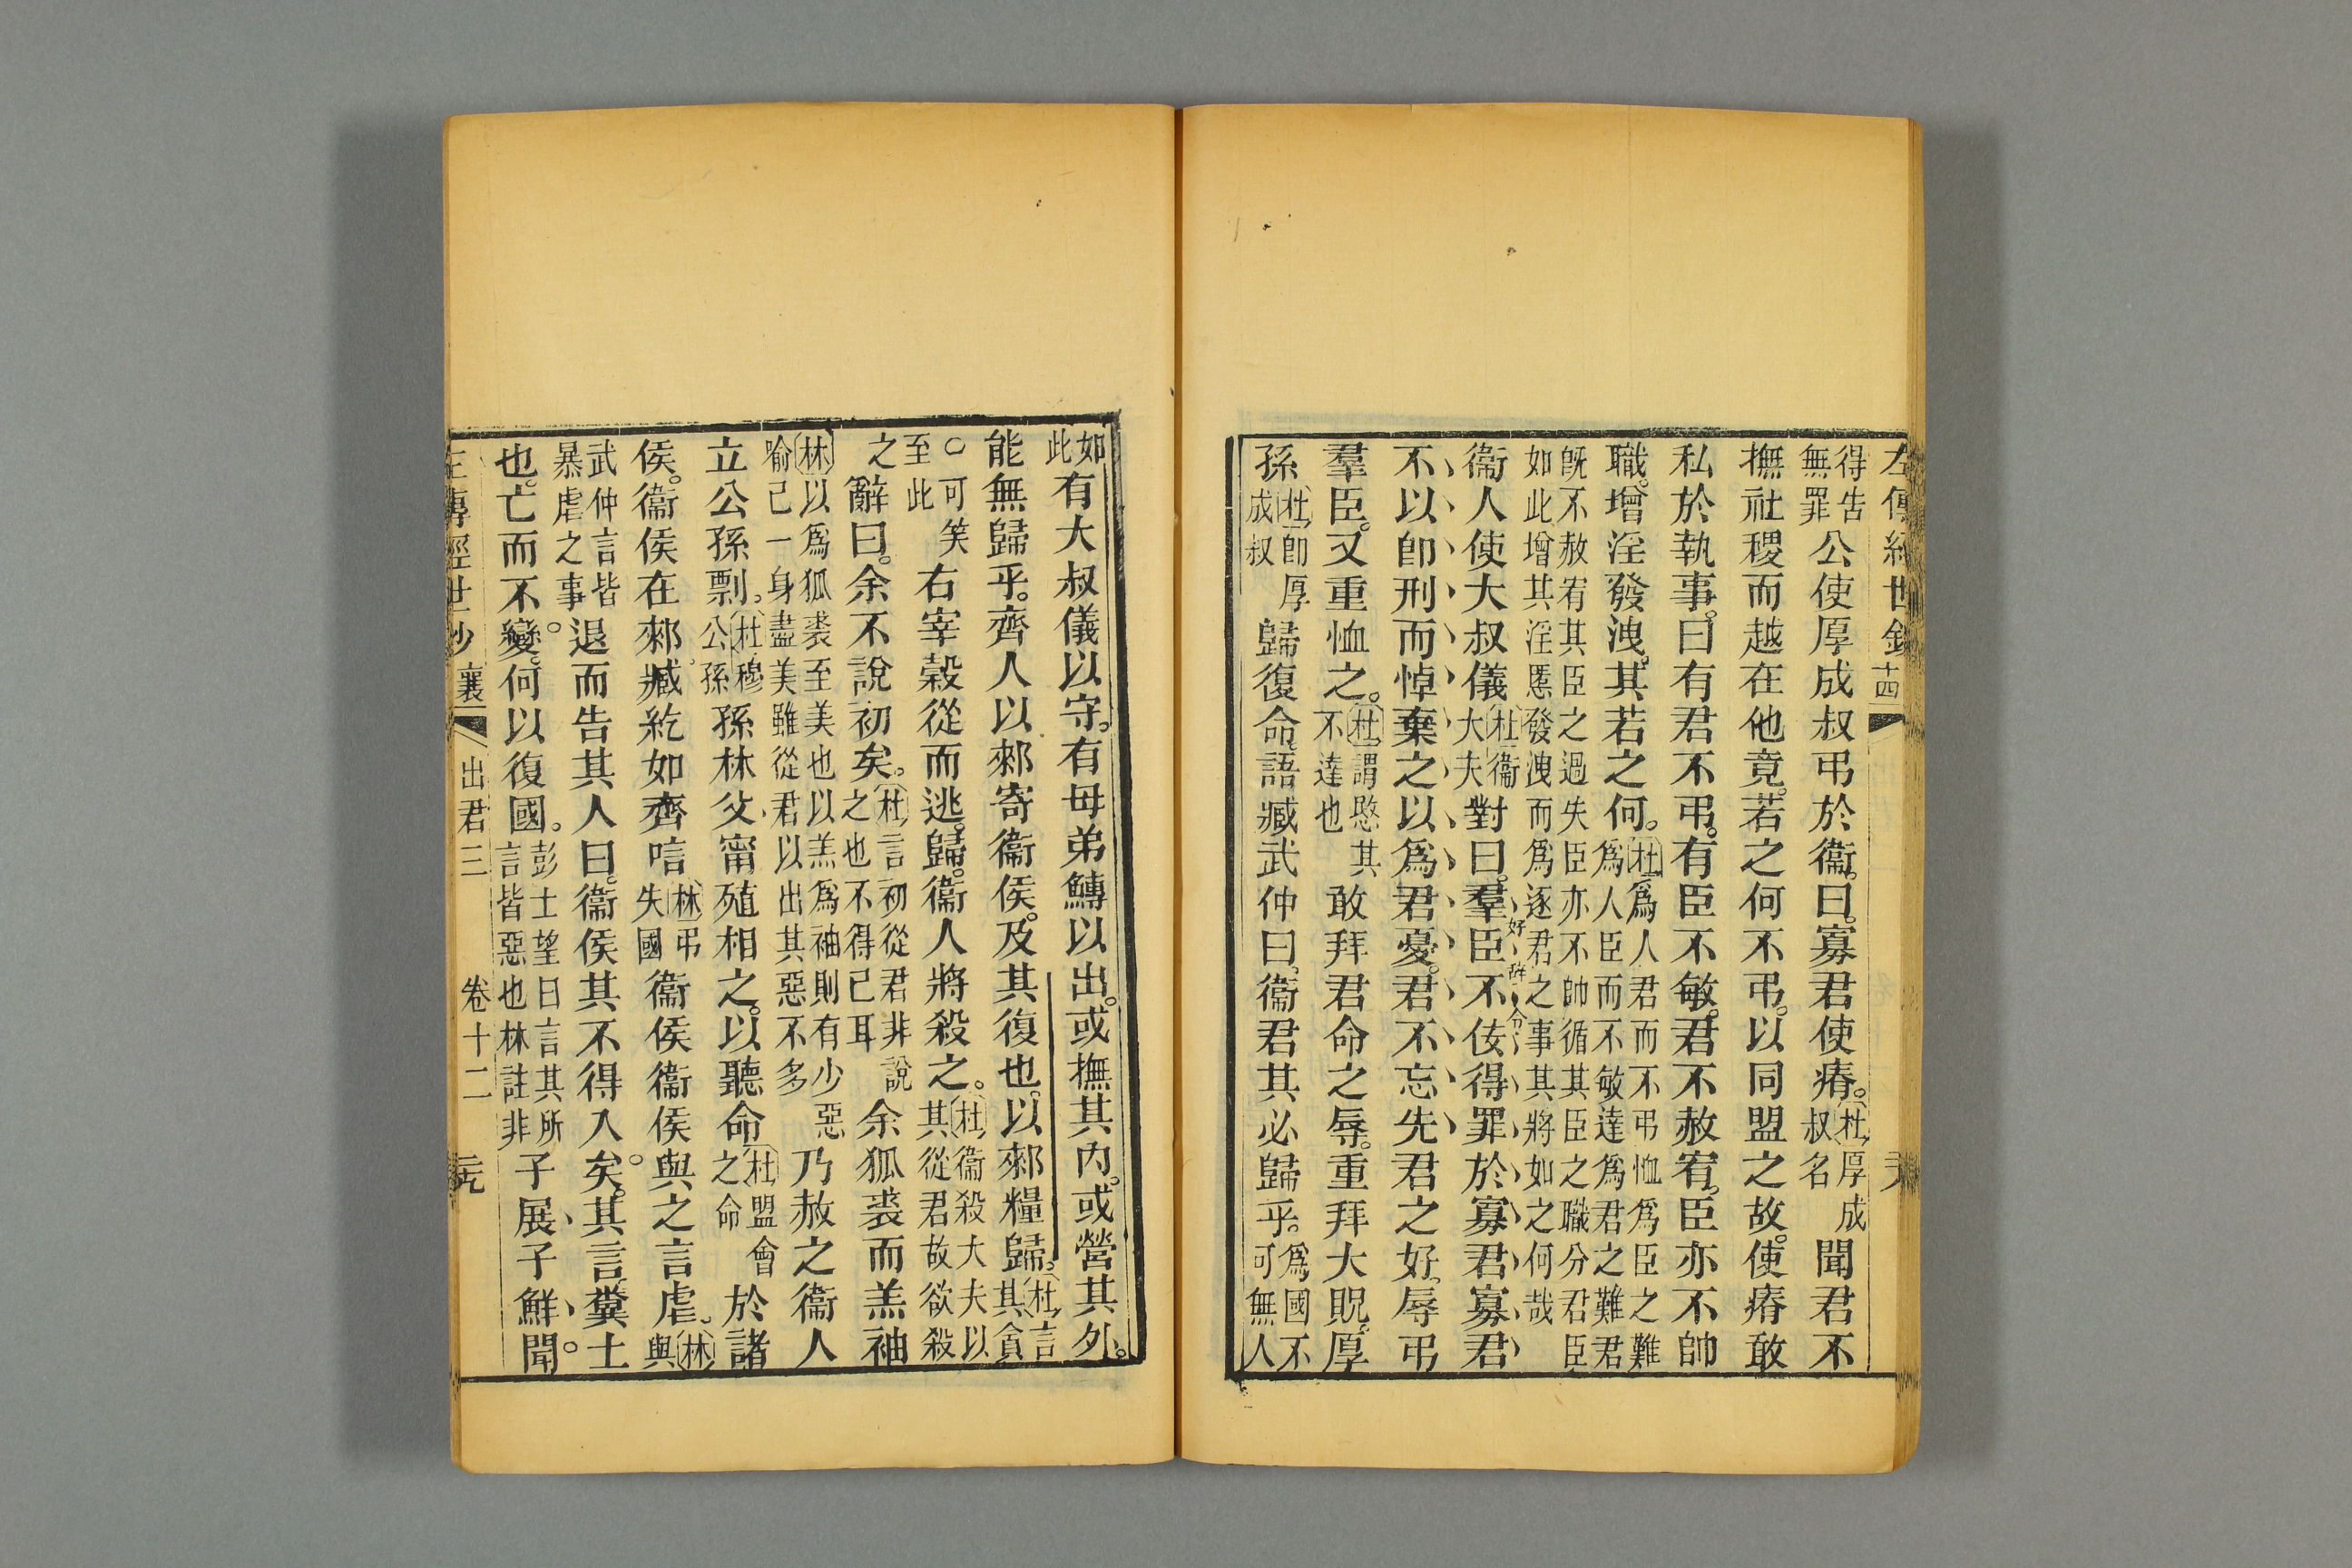 左傳經世鈔 十四
得告無罪公使厚成叔弔於衞曰寡君使瘠杜厚成叔名聞君不
撫社稷而越在他竟若之何不弔以同盟之故使瘠敢
私於執事曰有君不弔有臣不敏君不赦宥臣亦不帥
職增淫發洩其若之何杜爲人君而不弔恤爲臣之難爲人臣而不敏達爲君之難君
既不赦宥其臣之過失臣亦不帥循其臣之職分君臣如此增其淫慝發洩而爲逐君之事其將如之何哉
衞人使大叔儀杜衞大夫對曰羣臣不佞得罪於寡君寡君
好辭令
不以卽刑而悼棄之以爲君憂君不忘先君之好辱弔
羣臣又重恤之杜謂愍其不達也敢拜君命之辱重拜大貺厚
孫杜卽厚成叔歸復命語臧武仲曰衞君其必歸乎爲國不可無人
如此有大叔儀以守有母弟鱄以出或撫其內或營其外
能無歸乎齊人以郲寄衞侯及其復也以郲糧歸杜言其貪
○可笑至此右宰穀從而逃歸衞人將殺之杜衞殺大夫以其從君故欲殺
之辭曰余不說初矣杜言初從君非說之也不得已耳余狐裘而羔袖
林以爲狐裘至美也以羔爲袖則有少惡喻己一身盡美雖從君以出其惡不多乃赦之衞人
立公孫剽杜穆公孫孫林父甯殖相之以聽命杜盟會之命於諸
侯衞侯在郲臧紇如齊唁林弔失國衞侯衞侯與之言虐林與
武仲言皆暴虐之事退而告其人曰衞侯其不得入矣其言糞土
也亡而不變何以復國彭士望曰言其所言皆惡也林註非子展子鮮聞
左傳經世鈔 襄 出君三 卷十二